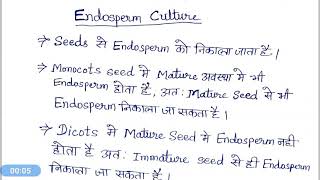 Endosperm Culture
→ Seeds से Endosperm को निकाला जाता है।
→ Monocots seed मे Mature अवस्था मे भी
Endosperm होता है, अतः Mature Seed से भी
Endosperm निकाला जा सकता है।
→ Dicots मे Mature Seed मे Endosperm नही
होता है अतः Immature seed से ही Endosperm
निकाला जा सकता है।
00:05